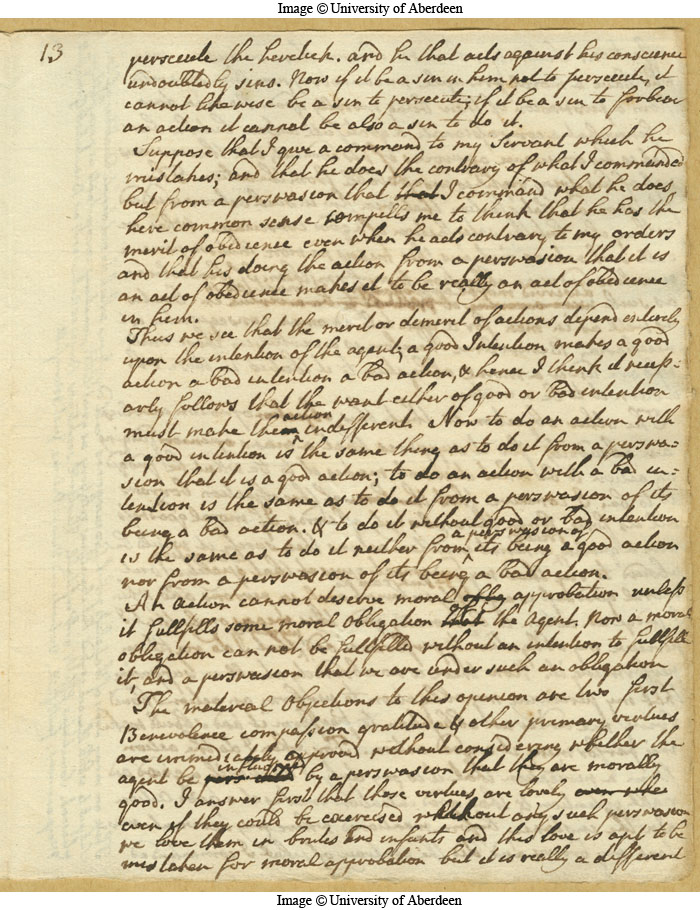 Image © University of Aberdeen
13
persecute the heretick. and he that acts against his conscience
undoubtedly sins. Now if it be a sin in him not to persecute, it
cannot likewise be a sin to persecute; if it be a sin to forbear
an action it cannot be also a sin to do it.
Suppose that I give a command to my Servant which he
mistakes; and that he does the contrary of what I commanded
but from a perswasion that that I command what he does,
here common sense compells me to think that he has the
merit of obedience even when he acts contrary to my orders
and that his doing the action from a perswasion that it is
an act of obedience makes it to be really an act of obedience
in him.
Thus we see that the merit or demerit of actions depend intirely
upon the intention of the agent, a good Intention makes a good
action a bad intention a bad action, & hence I think it necess-
arly follows that the want either of good or bad intention
must make the action indifferent. Now to do an action with
a good intention is the same thing as to do it from a perswa-
sion that it is a good action; to do an action with a bad in-
tention is the same as to do it from a perswasion of its
being a bad action. & to do it without good or bad intention
is the same as to do it neither from a perswasion of its being a good action
nor from a perswasion of its being a bad action.
An action cannot deserve moral approbation unless
it fullfills some moral Obligation the Agent. Now a moral
obligation can not be fullfilled without an intention to fullfill
it, and a perswasion that we are under such an obligation
The material Objections to this opinion are two first
Benevolence compassion gratitude & other primary virtues
are immediatly approvd without considering whether the
agent be influenced by a perswasion that they are morally
good. I answer first that these virtues are lovely
even if they could be exercised without any such perswasion
we love them in brutes and infants and this love is apt to be
mistaken for moral approbation but it is really a different
Image © University of Aberdeen